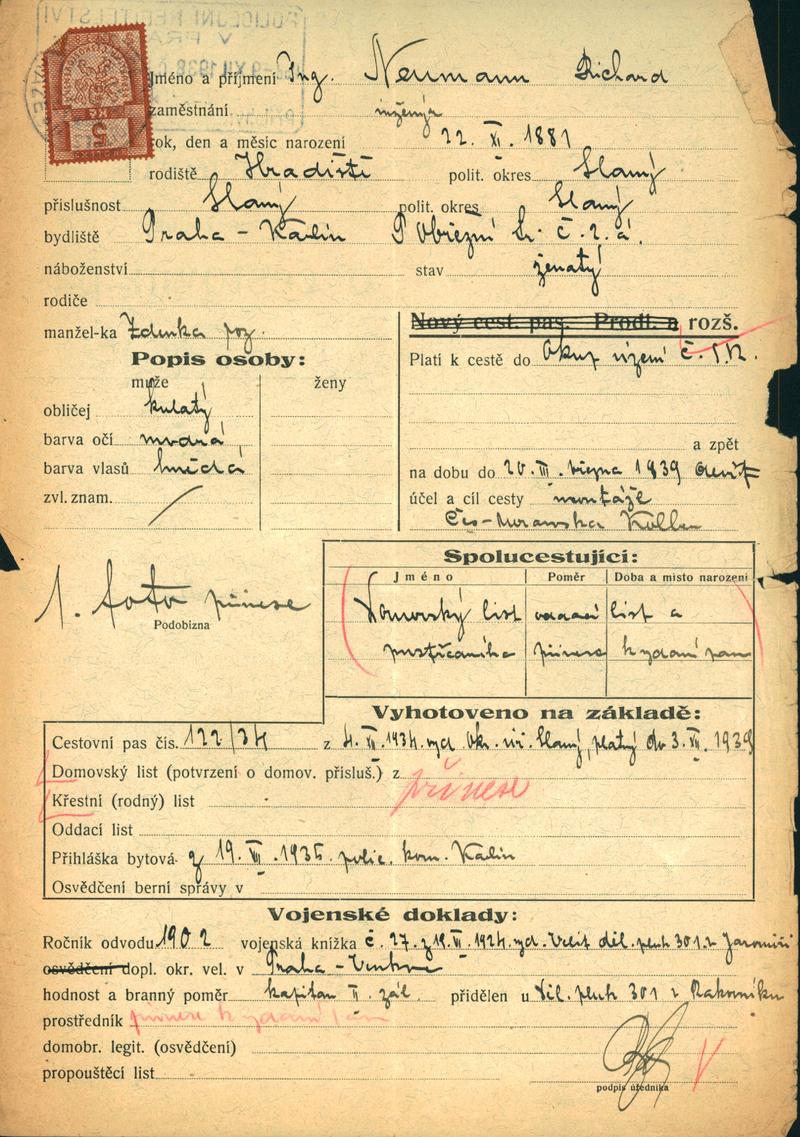 POLICEJNÍ ŘEDITELSTVÍ
V PRAZE
9 XII 1938
Přílohy
Kč
5
Jméno a příjmení Ing. Neumann Richard
zaměstnání inženýr
rok, den a měsíc narození 22. XI. 1881
rodiště Hradiště polit. okres Slaný
příslušnost Slaný polit. okres Slaný
bydliště Praha - Karlín Pobřežní č. 2.a.
náboženství stav ženatý
rodiče
manžel-ka Zdenka roz.
Nový cest. pas. Prodl. a rozš.
Popis osoby:
muže ženy
Platí k cestě do okup území č. 
obličej kulatý
barva očí modrá
barva vlasů hnědá
zvl. znam. /
a zpět
na dobu do 20. III. 1939
účel a cíl cesty montáže
Čes-Moravska Kolben
Spolucestující:
Jméno Poměr Doba a místo narození
Domovský list oddací list a
přinese k vydání pasu
1. foto přinese
Podobizna
Vyhotoveno na základě:
Cestovní pas čís. 122/34 z 4. XII. 1934 vyd. Okr. úř. Slaný, platný do 3. XII. 1939
Domovský list (potvrzení o domov. přísluš.) z
přinese
Křestní (rodný) list
Oddací list
Přihláška bytová z 19. 1935 polic. kom. Karlín
Osvědčení berní správy v
Vojenské doklady:
Ročník odvodu 1902 vojenská knížka č. 27. z 1924 vyd. Velit. děl. pluk 301 v Jaroměři
osvědčení dopl. okr. vel. v Praha - Venkov
hodnost a branný poměr kapitan v zál. přidělen u Děl. pluk 301 v Rakovníku
prostředník přinese k vydání
domobr. legit. (osvědčení)
propouštěcí list
podpis úředníka